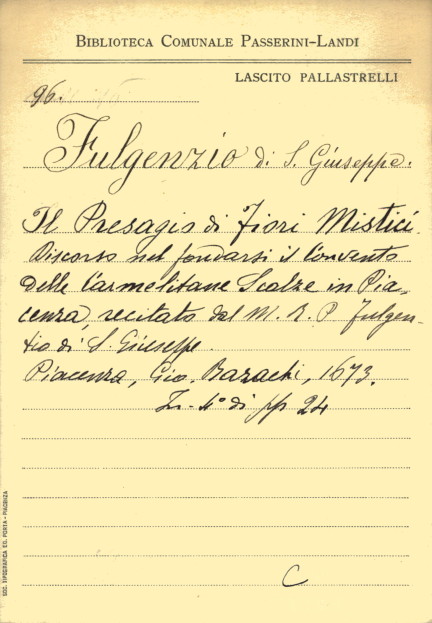 BIBLIOTECA COMUNALE PASSERINI-LANDI
LASCITO PALLASTRELLI
96.
Fulgenzio di S. Giuseppe.
Il Presagio di Fiori Mistici.
Discorso nel fondarsi il Convento
delle Carmelitane Scalze in Pia-
cenza, recitato dal M. R. P Fulgen-
tio di S. Giuseppe.
Piacenza, Gio. Bazachi, 1673.
In-4° di pp 24
C
SOC. TIPOGRAFICA ED. PORTA - PIACENZA